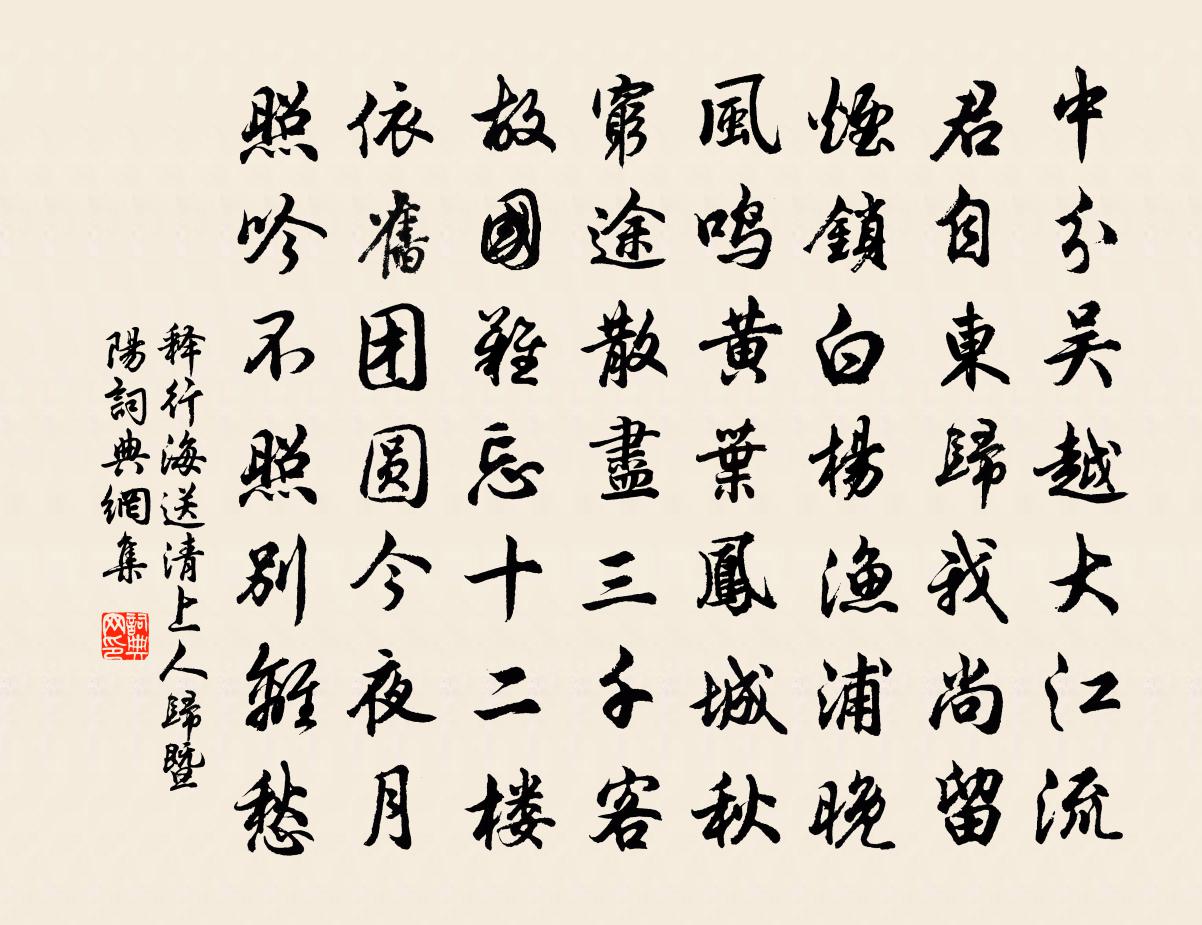 中分吴越大江流
君自東歸我尚留
煙鎖白楊漁浦晚
風鸣黄葉鳳城秋
窮途散盡三千客
故國難忘十二楼
依舊团圆今夜月
照吟不照别離愁
释行海送清上人歸暨
陽詞典網集
詞典网印